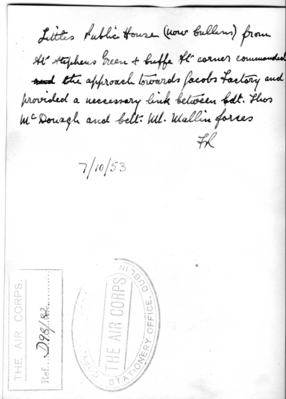 Littles Public House (now Cullens) from
St Stephens Green + Cuffe St corner commanded
the approach towards Jacobs Factory and
provided a necessary link between Cdt. Thos
McDonagh and Cdt. Ml. Mallin forces
FR
7/10/53
THE AIR CORPS.
Ref. D98/82
THE AIR CORPS
STATIONERY OFFICE. DUBLIN